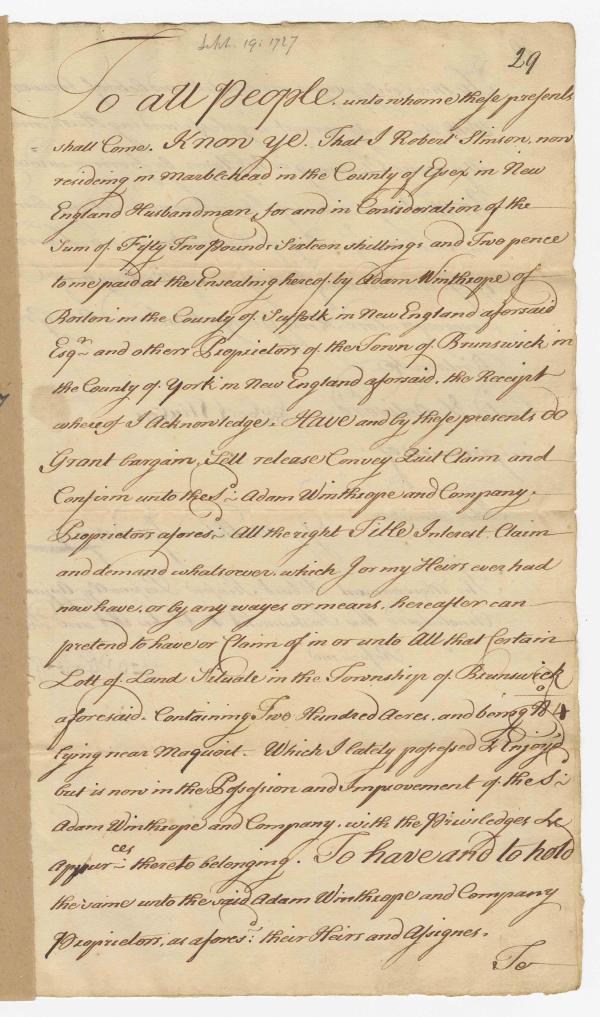 Sept. 19: 1727
29
To all People. unto whome these presents
shall Come. Know ye. That I Robert Stinson, now
resideing in Marblehead in the County of Essex in New
England Husbandman, for and in Consideration of the
Sum of. Fifty Two Pounds Sixteen shillings and Two pence
to me paid at the Ensealing hereof. by Adam Winthrope of
Boston in the County of. Suffolk in New England aforsaid
Esqr. and others Proprietors of. the Town of. Brunswick in
the County of. York in New England aforsaid. the Receipt
whereof I Acknowledge. Have and by these presents do
Grant bargain, Sell release Convey Quit Claim and
Confirm unto the Sd. Adam Winthrope and Company.
Proprietors aforesd. All the right Title Interest. Claim
and demand whatsoever. which I or my Heirs ever had
now have, or by any wayes or means, hereafter can
pretend to have or Claim of in or unto All that Certain
Lott of Land Situate in the Township of. Brunswick
aforesaid. Containing Two Hundred Acres. and being No. 4
lying near Maquoit. Which I lately posessed & Enjoyd
but is now in the Posession and Improvement of. the Sd.
Adam Winthrope and Company. with the Priviledges &c
Appurces thereto belonging. To have and to hold
the same unto the said Adam Winthrope and Company
Proprietors, as aforesd. their Heirs and Assignes.
To